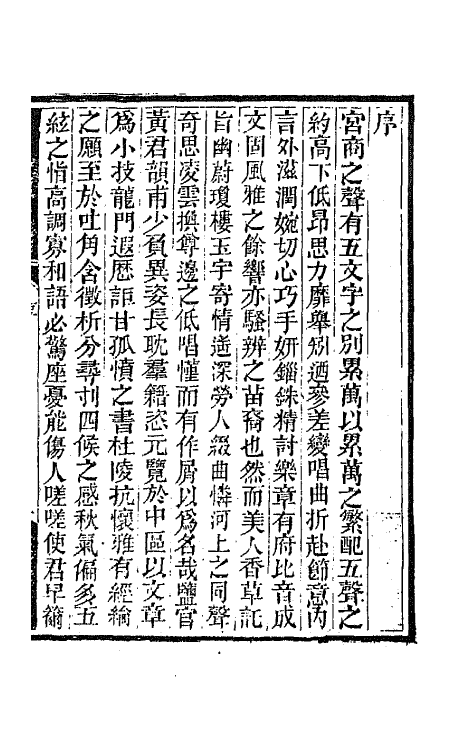 序
宮商之聲有五文字之別累萬以累萬之繁配五聲之
約高下低昂思力靡舉矧迺參差變唱曲折赴節意內
言外滋潤婉切心巧手妍錙銖精討樂章有府比音成
文固風雅之餘響亦騷辨之苗裔也然而美人香草託
旨幽蔚瓊樓玉宇寄情遙深勞人綴曲憐河上之同聲
奇思凌雲撰尊邊之低唱僅而有作屑以爲名哉鹽官
黃君韻甫少負異姿長耽羣籍恣元覽於中區以文章
爲小技龍門遐歷詎甘孤憤之書杜陵抗懷雅有經綸
之願至於吐角含徵析分尋刌四候之感秋氣偏多五
絃之悄高調寡和語必驚座憂能傷人嗟嗟使君早